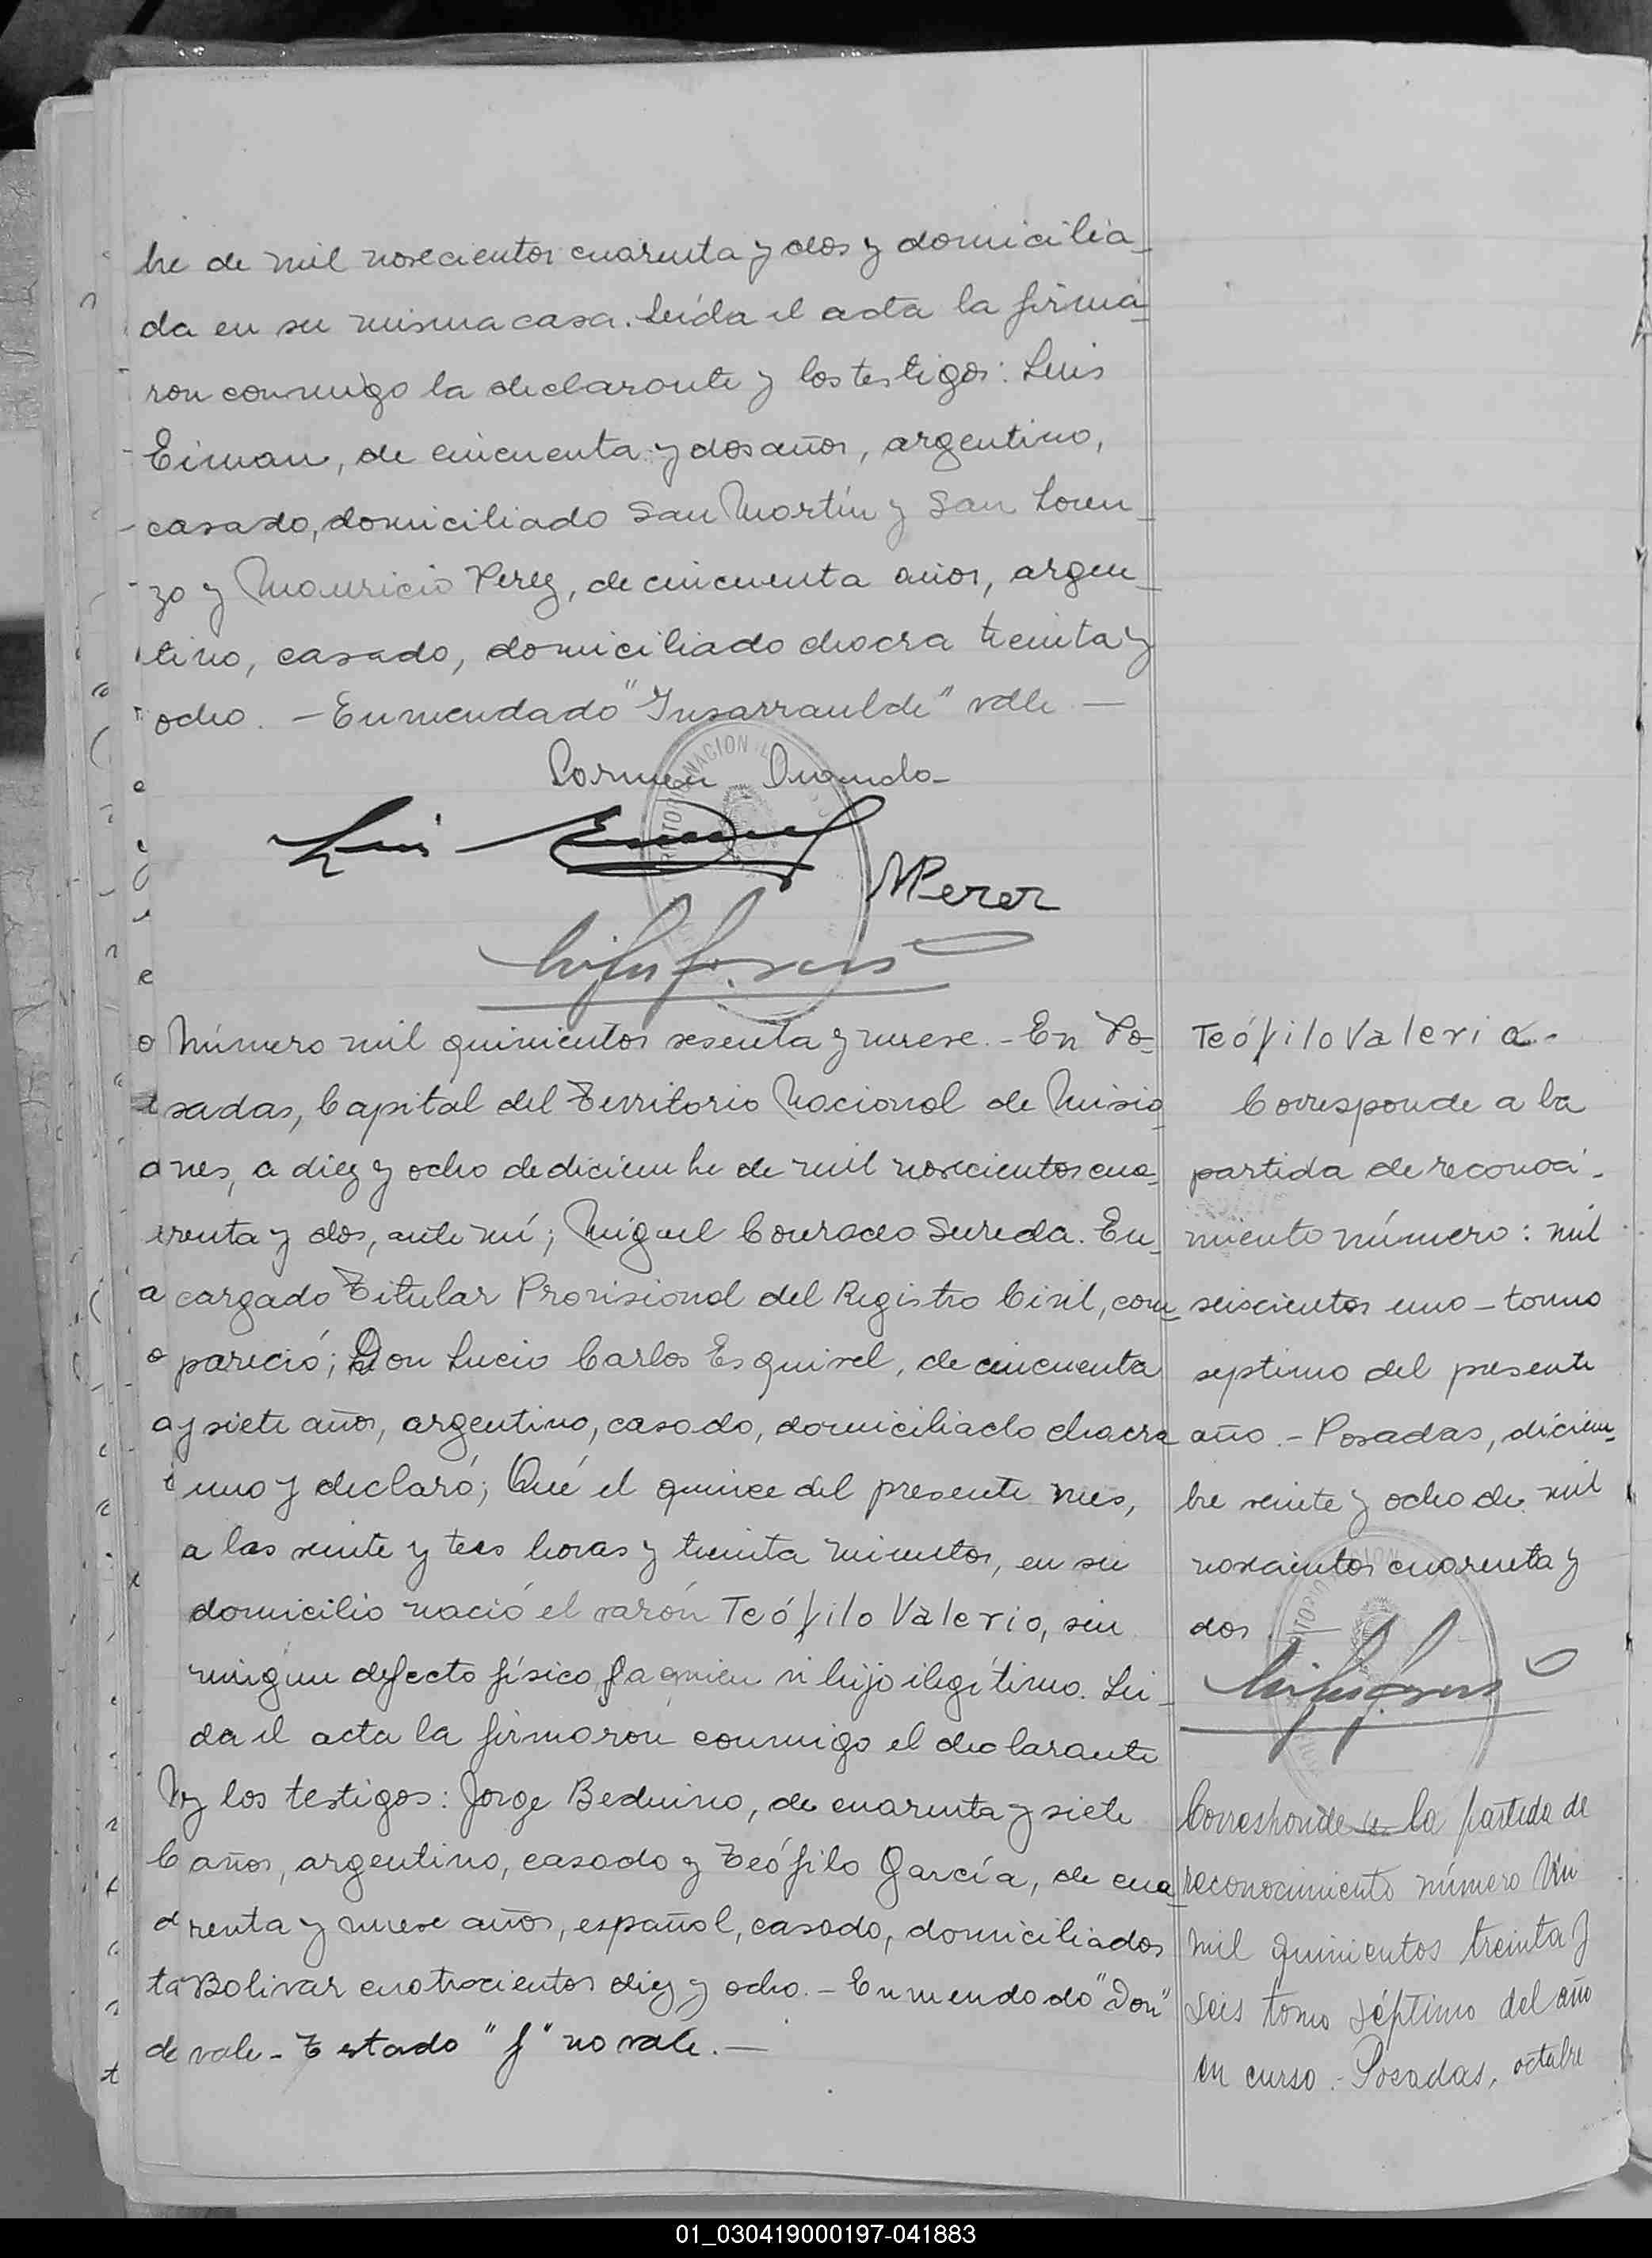 bre de mil novecientos cuarenta y dos y domicilia-
da en su misma casa. Leída el acta la firma-
ron conmigo la declarante y los testigos: Luis
Eiman, de cincuenta y dos años, argentino,
casado, domiciliado San Martín y San Loren-
zo y Mauricio Perez, de cincuenta años, argen-
tino, casado, domiciliado chacra treinta y
ocho. - Enmendado "Insarraulde" vale -
Luis
MPerez
Número mil quinientos sesenta y nueve. - En Po-
sadas, Capital del Territorio Nacional de Misio-
nes, a diez y ocho de diciembre de mil novecientos cua-
renta y dos, ante mí; Miguel Sureda. En-
cargado Titular Provisional del Registro Civil, com-
pareció; Don Lucio Carlos Esquivel, de cincuenta
y siete años, argentino, casado, domiciliado chacra
uno y declaró; Qué el quince del presente mes,
a las veinte y tres horas y treinta minutos, en su
domicilio nació el varón Teófilo Valerio, sin
ningun defecto físico, hijo ilegítimo. Leí-
da el acta la firmaron conmigo el declarante
y los testigos: Jorge Beduino, de cuarenta y siete
años, argentino, casado y Teófilo García, de cua-
renta y nueve años, español, casado, domiciliados
Bolivar cuatrocientos diez y ocho. - Enmendado "Don"
vale - Testado "f" no vale. -
Teófilo Valerio.-
Corresponde a la
partida de reconoci-
miento número: mil
seiscientos uno - tomo
septimo del presente
año. - Posadas, diciem-
bre veinte y ocho de mil
novecientos cuarenta y
dos.
Corresponde a la partida de
reconocimiento número Un
mil quinientos treinta y
seis tomo séptimo del año
en curso. - Posadas, octubre
01_030419000197-041883